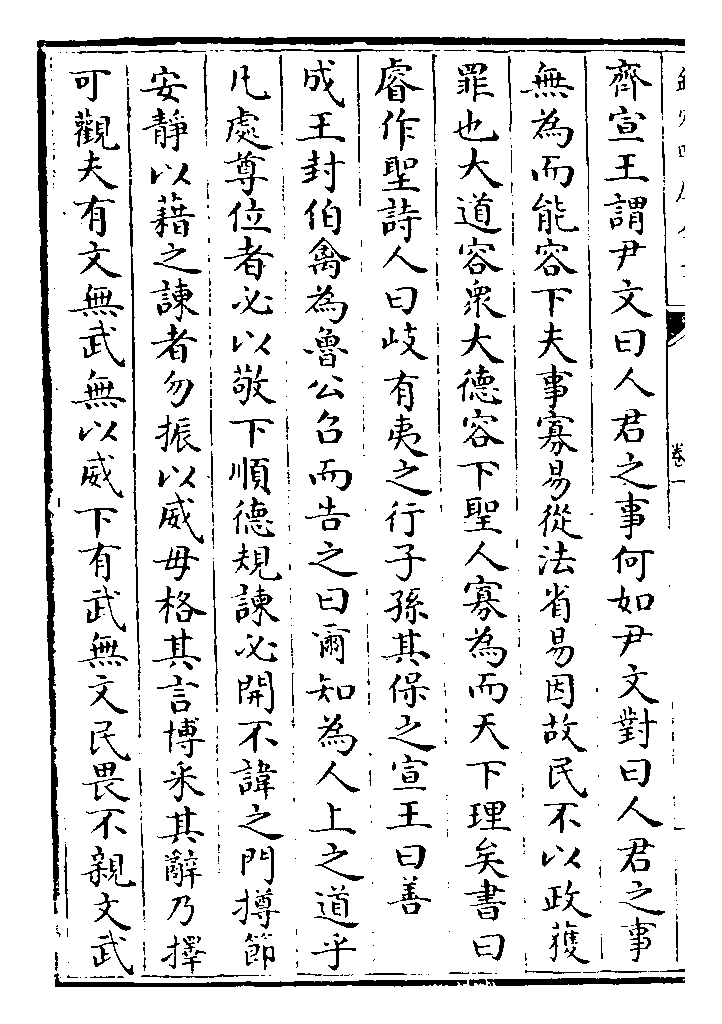 齊宣王謂尹文曰人君之事何如尹文對曰人君之事
無為而能容下夫事寡易從法省易因故民不以政獲
罪也大道容衆大德容下聖人寡為而天下理矣書曰
睿作聖詩人曰岐有夷之行子孫其保之宣王曰善
成王封伯禽為魯公召而告之曰爾知為人上之道乎
凡處尊位者必以敬下順德規諫必開不諱之門撙節
安靜以藉之諫者勿振以威毋格其言博采其辭乃擇
可觀夫有文無武無以威下有武無文民畏不親文武
卷一